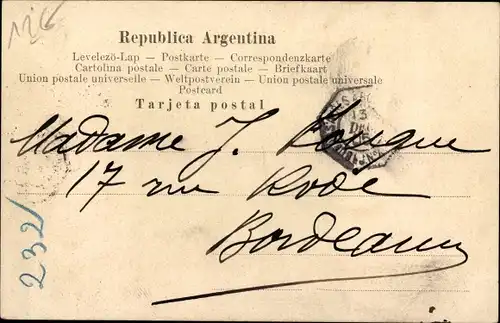 126
Republica Argentina
Levelezö-Lap — Postkarte — Correspondenzkarte
Cartolina postale — Carte postale — Briefkaart
Union postale universelle — Weltpostverein — Union postale universale
Postcard
Tarjeta postal
13
Madame J.
17 rue Rode
Bordeaux
232